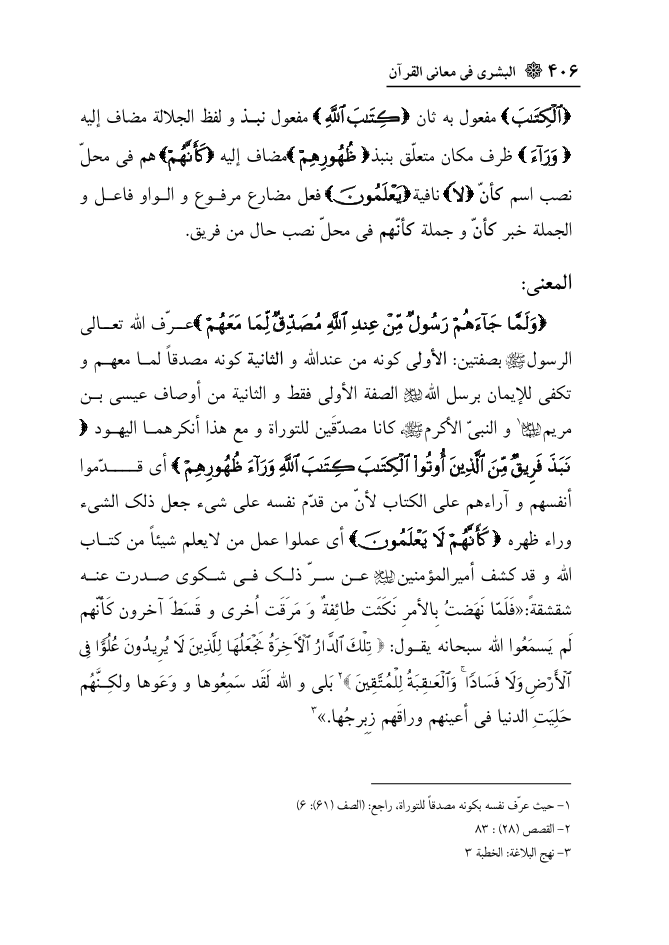 ٤٠٦ ۞ البشرى فى معانى القرآن
﴿ٱلْكِتَـٰبَ﴾ مفعول به ثان ﴿كِتَـٰبَ ٱللَّهِ﴾ مفعول نبـذ و لفظ الجلالة مضاف إليه
﴿وَرَآءَ﴾ ظرف مكان متعلّق بنبذ﴿ظُهُورِهِمْ﴾مضاف إليه ﴿كَأَنَّهُمْ﴾هم فى محلّ
نصب اسم كأنّ ﴿لَا﴾ نافية﴿يَعْلَمُونَ﴾فعل مضارع مرفـوع و الـواو فاعـل و
الجملة خبر كأنّ و جملة كأنّهم فى محلّ نصب حال من فريق.
المعنى:
﴿وَلَمَّا جَآءَهُمْ رَسُولٌ مِّنْ عِندِ ٱللَّهِ مُصَدِّقٌ لِّمَا مَعَهُمْ﴾عـرّف الله تعـالى
الرسولﷺ بصفتين: الأولى كونه من عندالله و الثانية كونه مصدقاً لمـا معهـم و
تكفى للإيمان برسل الله الصفة الأولى فقط و الثانية من أوصاف عيسى بـن
مريم١ و النبىّ الأكرمﷺ، كانا مصدّقَين للتوراة و مع هذا أنكرهمـا اليهود ﴿
نَبَذَ فَرِيقٌ مِّنَ ٱلَّذِينَ أُوتُوا۟ ٱلْكِتَـٰبَ كِتَـٰبَ ٱللَّهِ وَرَآءَ ظُهُورِهِمْ﴾ أى قـدّموا
أنفسهم و آراءهم على الكتاب لأنّ من قدّم نفسه على شىء جعل ذلک الشىء
وراء ظهره ﴿كَأَنَّهُمْ لَا يَعْلَمُونَ﴾ أى عملوا عمل من لايعلم شيئاً من كتـاب
الله و قد كشف أميرالمؤمنين عـن سـرّ ذلـک فـى شـكوى صـدرت عنـه
شقشقةً:«فَلَمّا نَهَضتُ بِالأمرِ نَكَثَت طائِفةٌ وَ مَرَقَت اُخرى و قَسَطَ آخرون كَأنّهم
لَم يَسمَعُوا الله سبحانه يقـول: ﴿ تِلْكَ ٱلدَّارُ ٱلْآخِرَةُ نَجْعَلُهَا لِلَّذِينَ لَا يُرِيدُونَ عُلُوًّا فِى
ٱلْأَرْضِ وَلَا فَسَادًا ۚ وَٱلْعَـٰقِبَةُ لِلْمُتَّقِينَ ﴾٢ بَلى و الله لَقَد سَمِعُوها و وَعَوها ولكـنَّهُم
حَلِيَتِ الدنيا فى أعينهم وراقَهم زِبرِجُها.»٣
١- حيث عرّف نفسه بكونه مصدقاً للتوراة، راجع: (الصف (٦١): ٦)
٢- القصص (٢٨) : ٨٣
٣- نهج البلاغة: الخطبة ٣